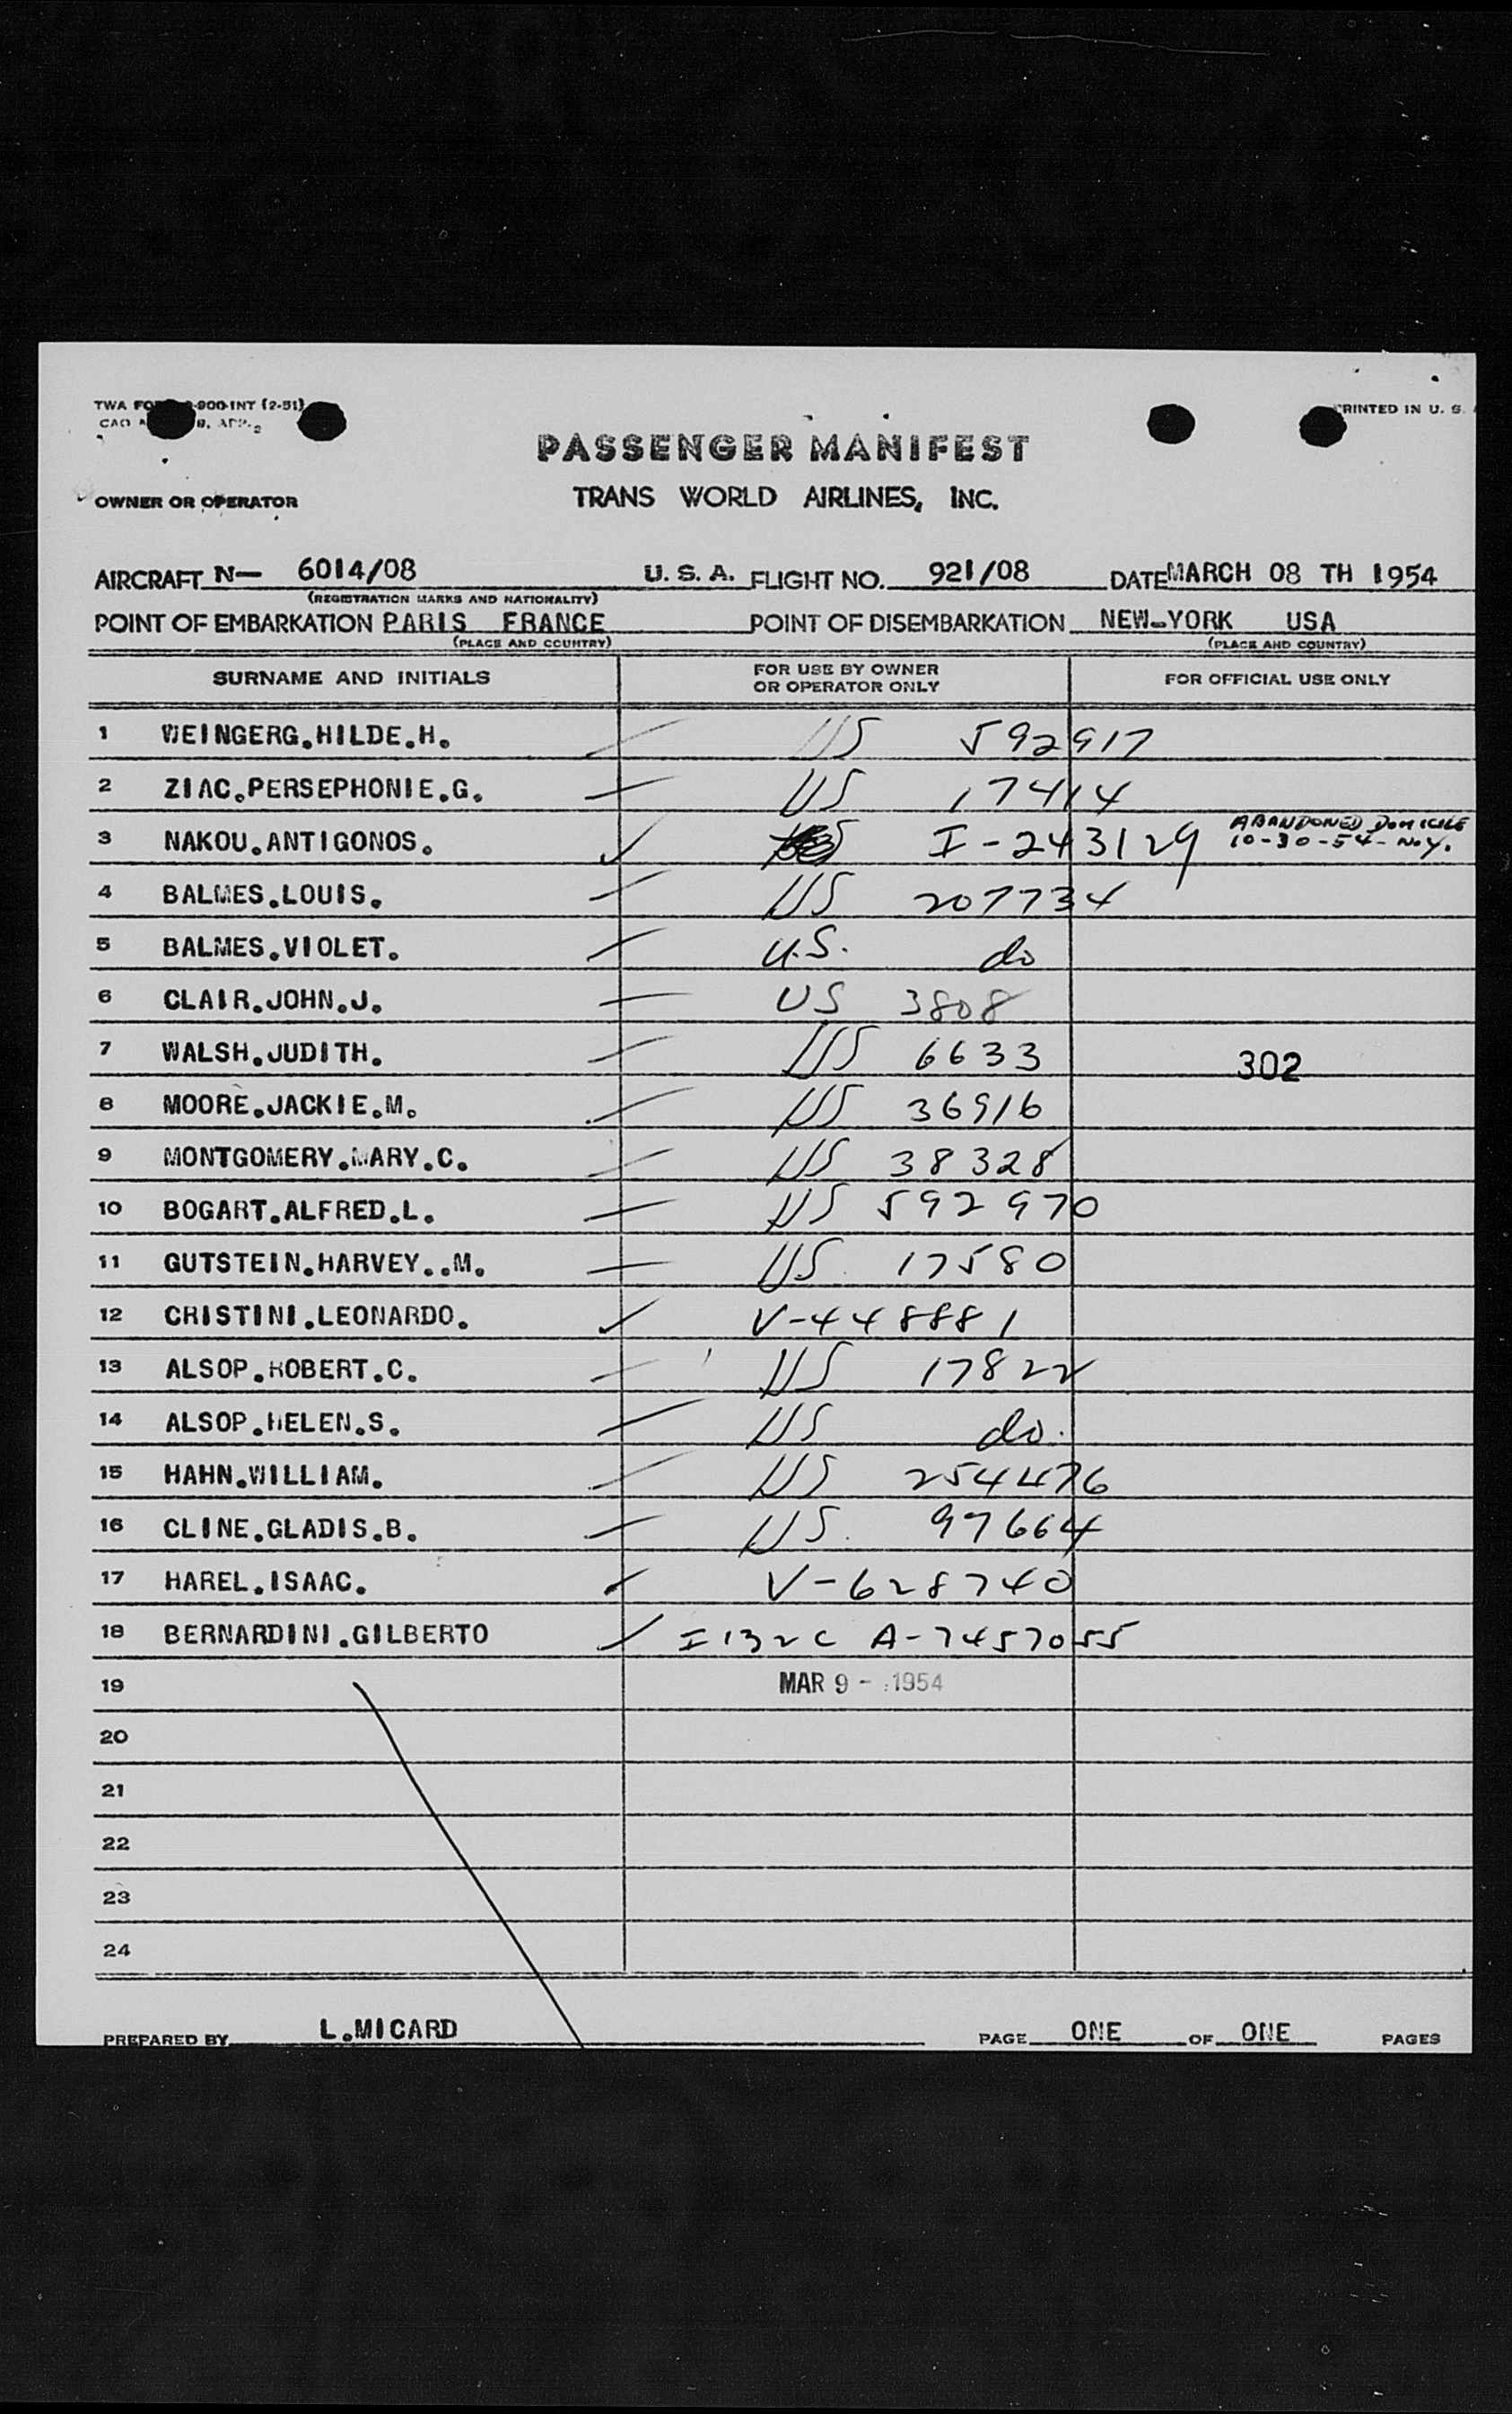 TWA FO -900-INT (2-51)
PRINTED IN U. S.
PASSENGER MANIFEST
OWNER OR OPERATOR TRANS WORLD AIRLINES, INC.
AIRCRAFT N— 6014/08 U. S. A. FLIGHT NO. 921/08 DATE MARCH 08 TH 1954
(REGISTRATION MARKS AND NATIONALITY)
POINT OF EMBARKATION PARIS FRANCE POINT OF DISEMBARKATION NEW-YORK USA
(PLACE AND COUNTRY) (PLACE AND COUNTRY)
SURNAME AND INITIALS FOR USE BY OWNER OR OPERATOR ONLY FOR OFFICIAL USE ONLY
1 WEINGERG.HILDE.H. US 592917
2 ZIAC.PERSEPHONIE.G. US 17414
3 NAKOU.ANTIGONOS. I-243129 ABANDONED DOMICILE 10-30-54-N.Y.
4 BALMES.LOUIS. US 207734
5 BALMES.VIOLET. U.S. do
6 CLAIR.JOHN.J. US 3808
7 WALSH.JUDITH. US 6633 302
8 MOORE.JACKIE.M. US 36916
9 MONTGOMERY.MARY.C. US 38328
10 BOGART.ALFRED.L. US 592970
11 GUTSTEIN.HARVEY..M. US. 17580
12 CRISTINI.LEONARDO. V-448881
13 ALSOP.ROBERT.C. US 17822
14 ALSOP.HELEN.S. US do.
15 HAHN.WILLIAM. US 254476
16 CLINE.GLADIS.B. US. 97664
17 HAREL.ISAAC. V-628740
18 BERNARDINI.GILBERTO I132C A-7457055
19 MAR 9 - 1954
20
21
22
23
24
PREPARED BY L.MICARD PAGE ONE OF ONE PAGES